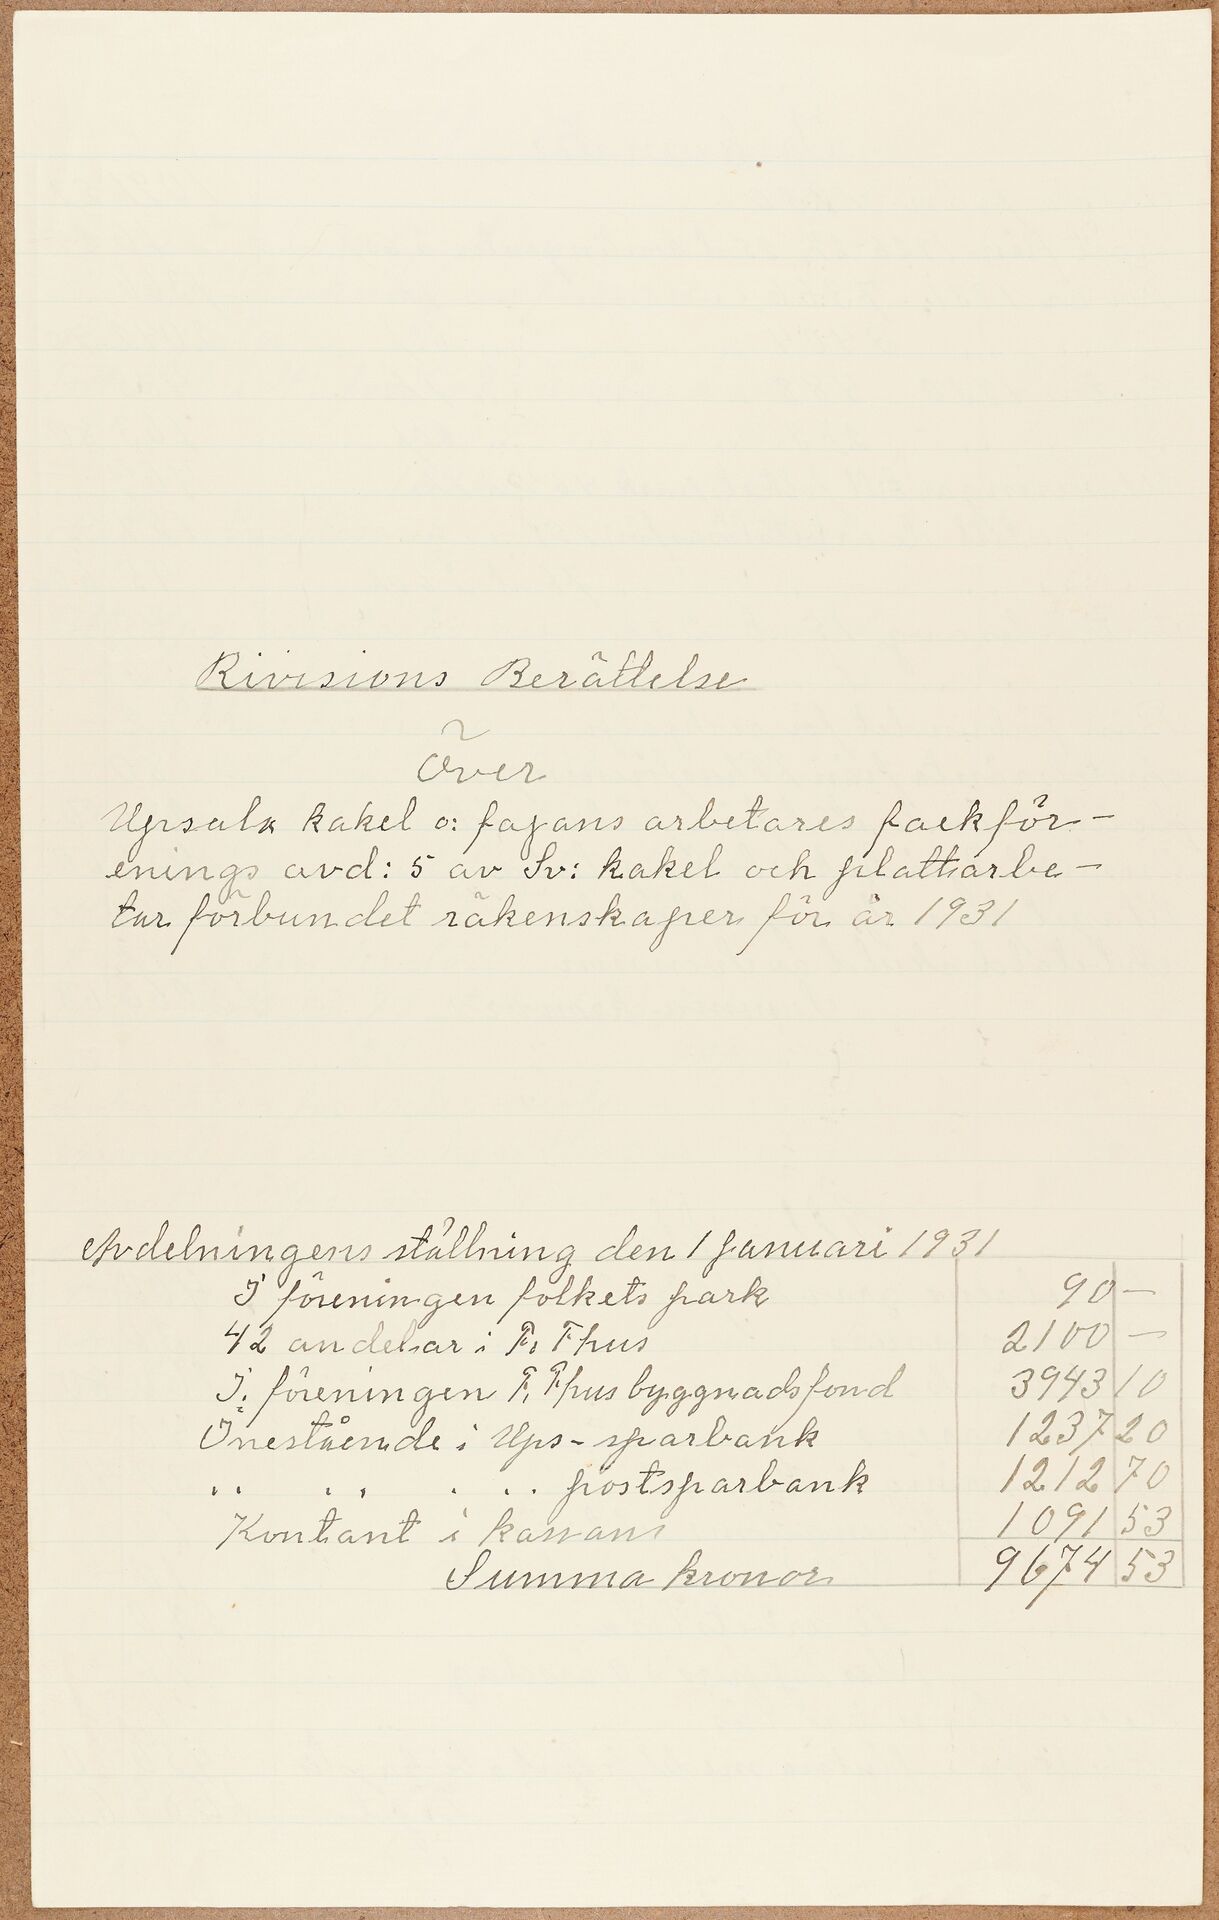 Rivisions Berättelse
Över
Upsala kakel o: fajans arbetares fackför-
enings avd: 5 av Sv: kakel och plattarbe-
tar förbundet räkenskaper för år 1931
Avdelningens ställning den 1 Januari 1931
I föreningen folkets park 90 —
42 andelar i F. F hus 2100 —
I. föreningen F. F hus byggnadsfond 3943 10
Inestående i Ups-sparbank 1237 20
" " " " postsparbank 1212 70
Kontant i kassan 1091 53
Summa kronor 9674 53